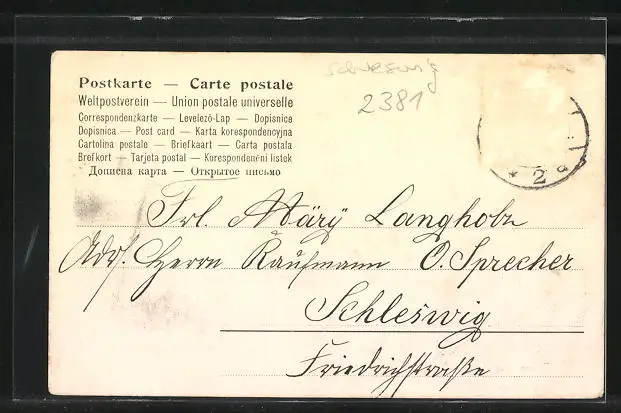 Schleswig
2381
Postkarte — Carte postale
Weltpostverein — Union postale universelle
Correspondenzkarte — Levelező-Lap — Dopisnice
Dopisnica — Post card — Karta korespondencyjna
Cartolina postale — Briefkaart — Carta postala
Brefkort — Tarjeta postal — Korespondenční listek
Дописна карта — Открытое письмо
* 2 a
Frl. Märÿ Langhohn
Adr. Herrn Kaufmann O. Sprecher
Schleswig
Friedrichstraße